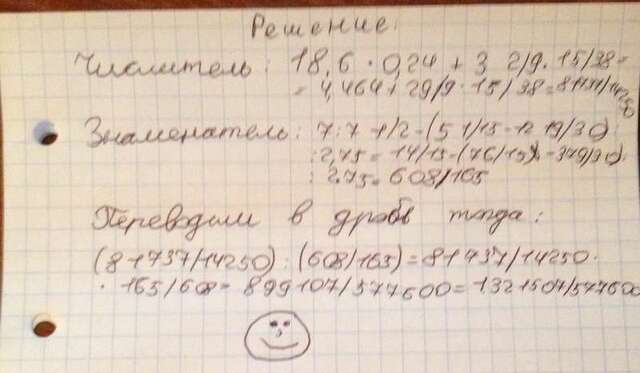 Решение:
Числитель: 18,6 · 0,24 + 3 2/9 · 15/38 =
= 4,464 + 29/9 · 15/38 = 81737/14250
Знаменатель: 7:7 1/2 - (5 1/15 - 12 19/30)
: 2,75 = 14/15 - (76/15 - 379/30) :
: 2,75 = 608/165
Переводим в дробь тогда:
(81737/14250) : (608/165) = 81737/14250 ·
· 165/608 = 899107/577600 = 1321507/577600